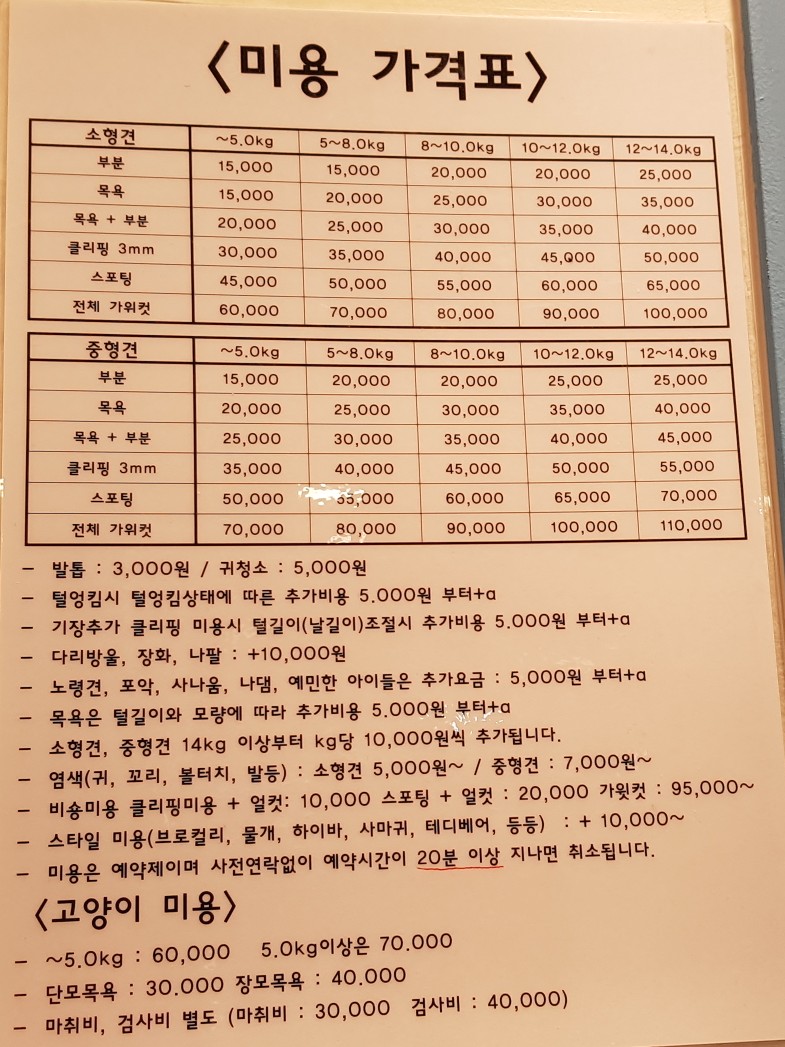 <미용 가격표>
소형견 ~5.0kg 5~8.0kg 8~10.0kg 10~12.0kg 12~14.0kg
부분 15,000 15,000 20,000 20,000 25,000
목욕 15,000 20,000 25,000 30,000 35,000
목욕 + 부분 20,000 25,000 30,000 35,000 40,000
클리핑 3mm 30,000 35,000 40,000 45,000 50,000
스포팅 45,000 50,000 55,000 60,000 65,000
전체 가위컷 60,000 70,000 80,000 90,000 100,000
중형견 ~5.0kg 5~8.0kg 8~10.0kg 10~12.0kg 12~14.0kg
부분 15,000 20,000 20,000 25,000 25,000
목욕 20,000 25,000 30,000 35,000 40,000
목욕 + 부분 25,000 30,000 35,000 40,000 45,000
클리핑 3mm 35,000 40,000 45,000 50,000 55,000
스포팅 50,000 55,000 60,000 65,000 70,000
전체 가위컷 70,000 80,000 90,000 100,000 110,000
- 발톱 : 3,000원 / 귀청소 : 5,000원
- 털엉킴시 털엉킴상태에 따른 추가비용 5.000원 부터+a
- 기장추가 클리핑 미용시 털길이(날길이)조절시 추가비용 5.000원 부터+a
- 다리방울, 장화, 나팔 : +10,000원
- 노령견, 포악, 사나움, 나댐, 예민한 아이들은 추가요금 : 5,000원 부터+a
- 목욕은 털길이와 모량에 따라 추가비용 5.000원 부터+a
- 소형견, 중형견 14kg 이상부터 kg당 10,000원씩 추가됩니다.
- 염색(귀, 꼬리, 볼터치, 발등) : 소형견 5,000원~ / 중형견 : 7,000원~
- 비숑미용 클리핑미용 + 얼컷: 10,000 스포팅 + 얼컷 : 20,000 가윗컷 : 95,000~
- 스타일 미용(브로컬리, 물개, 하이바, 사마귀, 테디베어, 등등) : + 10,000~
- 미용은 예약제이며 사전연락없이 예약시간이 20분 이상 지나면 취소됩니다.
<고양이 미용>
- ~5.0kg : 60,000 5.0kg이상은 70.000
- 단모목욕 : 30.000 장모목욕 : 40.000
- 마취비, 검사비 별도 (마취비 : 30,000 검사비 : 40,000)